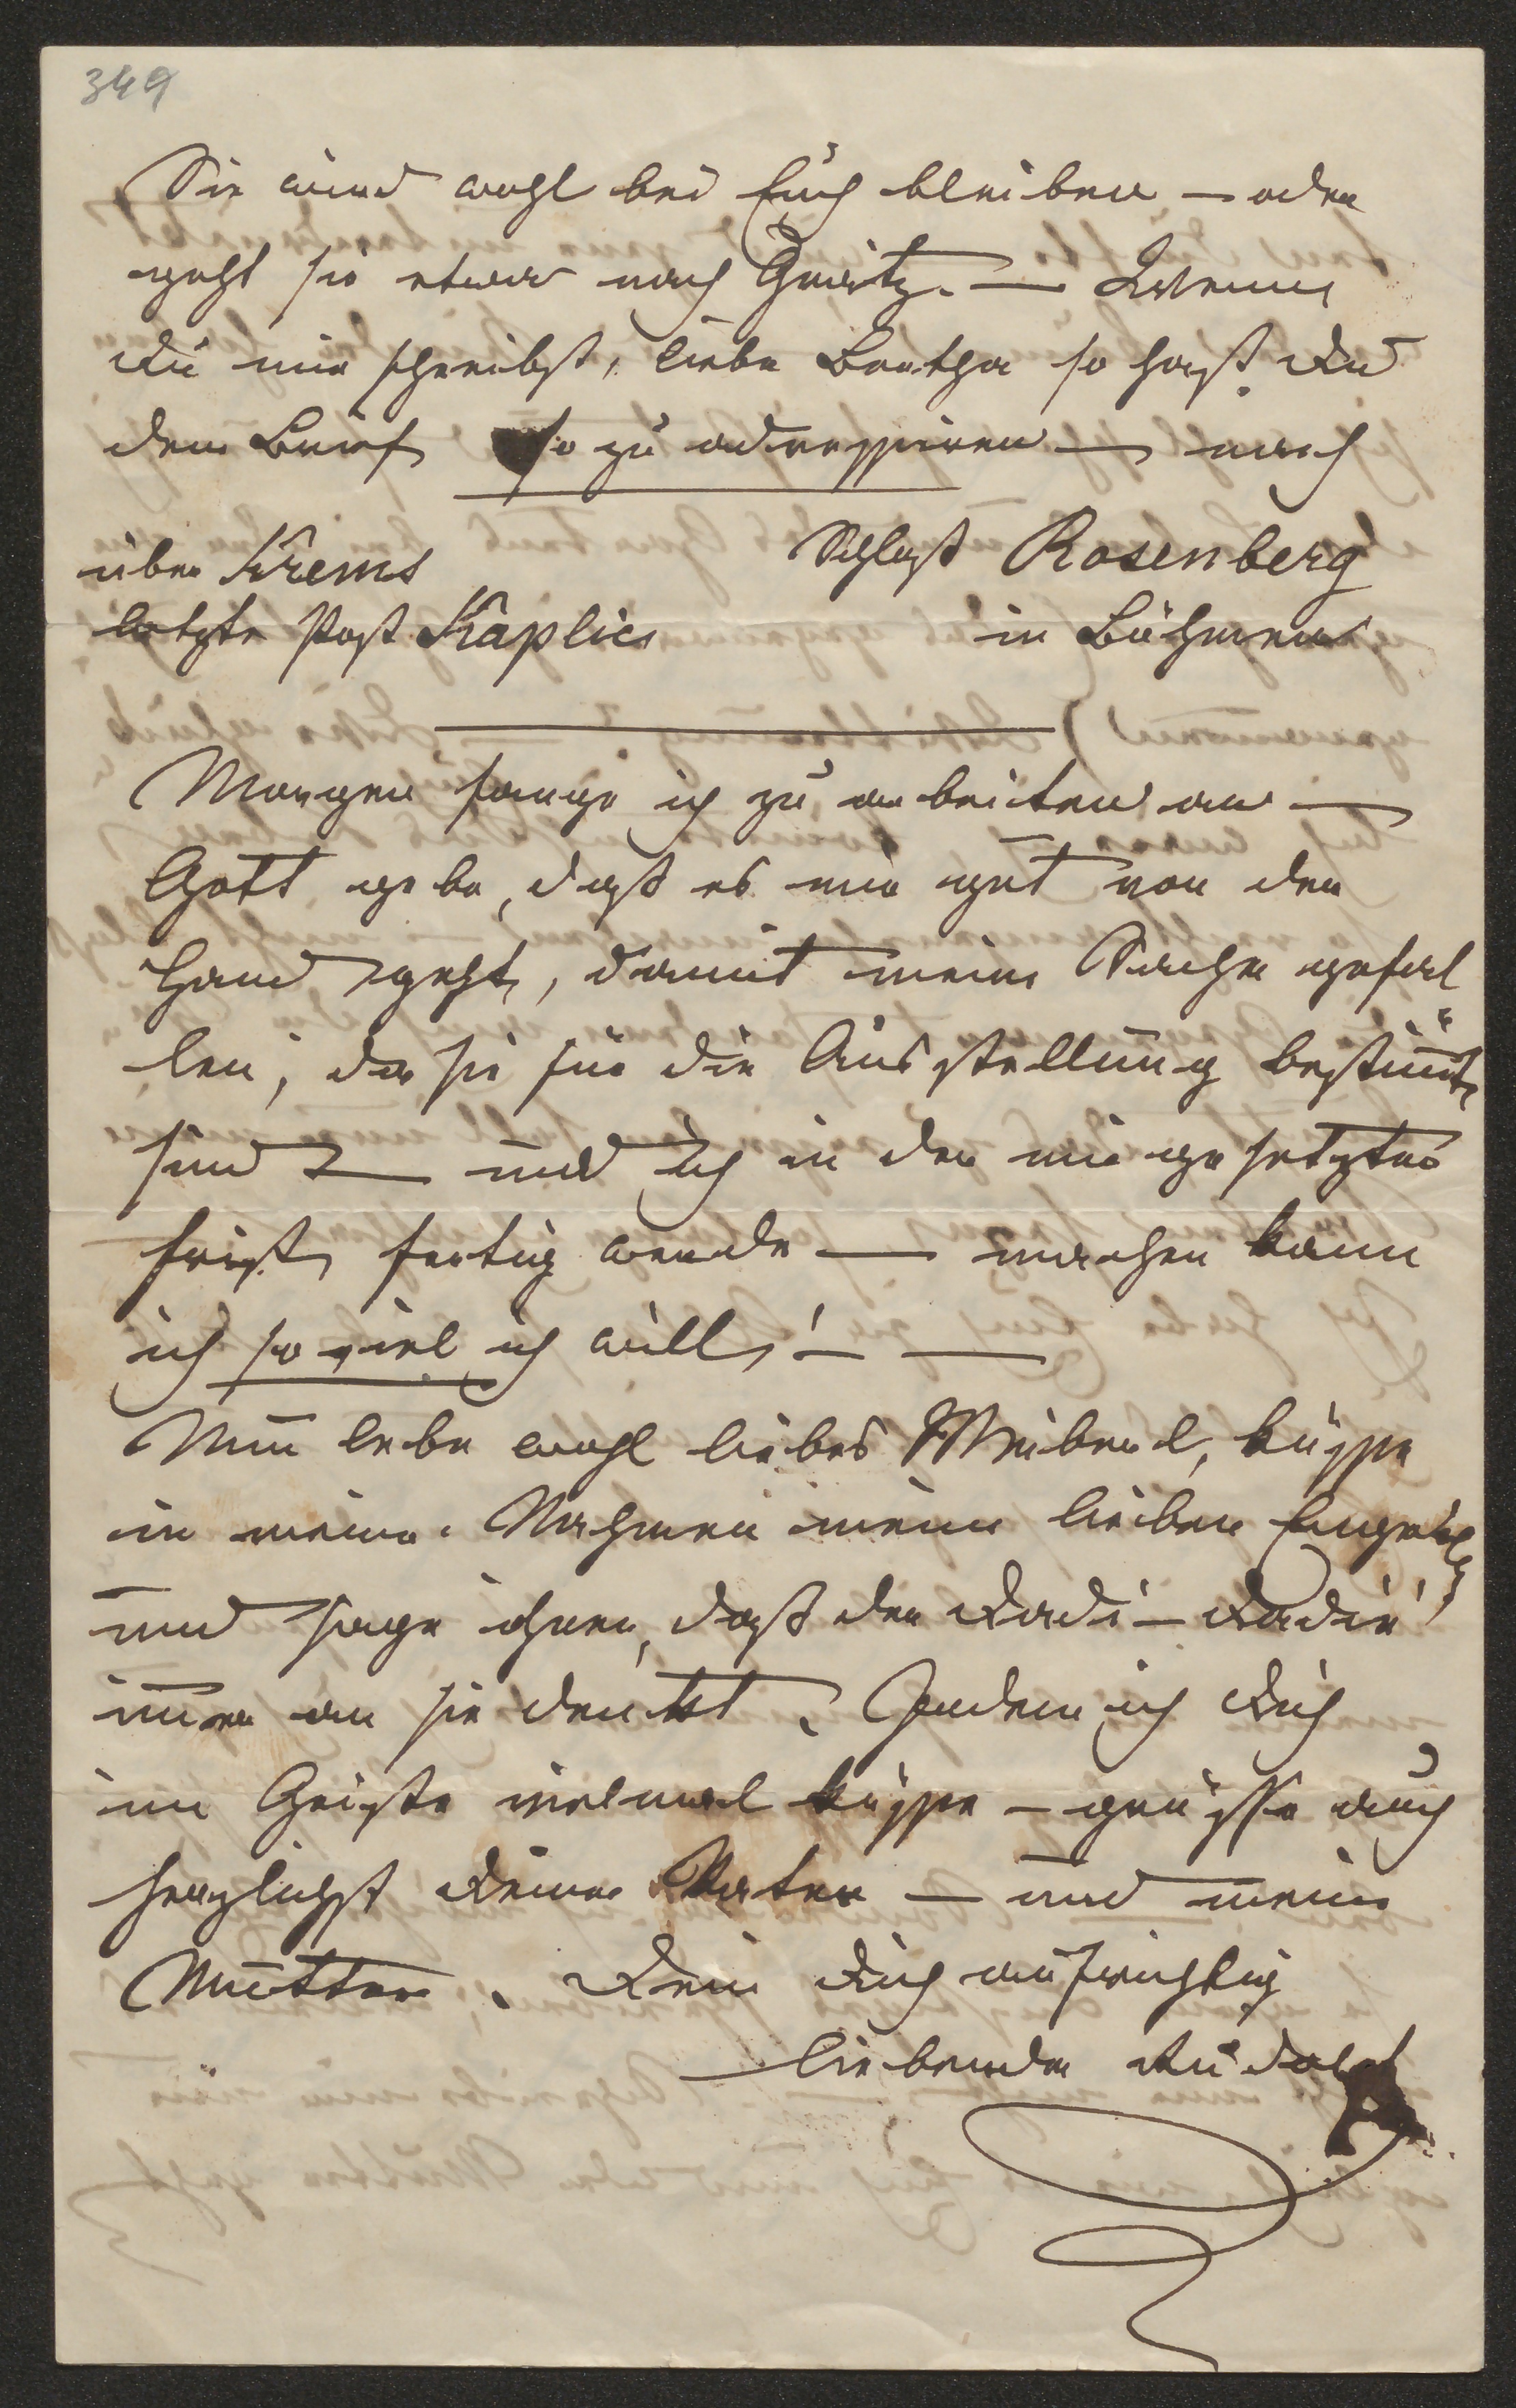 349
Sie wird wohl bei Euch bleiben — oder
geht sie etwa nach Gratz. — Wenn
Du mir schreibst, liebe Bertha so hast Du
den Brief so zu adressiren — nach
Schloß Rosenberg
über Krems
letzte Post Kaplic in Böhmen
Morgen fange ich zu arbeiten an —
Gott gebe, daß es mir gut von der
Hand geht, damit meine Sachen gefal
len, da sie für die Ausstellung bestim̅t
sind — und ich in der mir gesetzten
Frist fertig werde — machen kann
ich so viel ich will! — —
Nun lebe wohl liebes Weiberl, küsse
in meinen Nahmen meine lieben Engerln
und sage ihnen, daß der Dadi-Dadi
im̅er an sie denkt. Indem ich Dich
im Geiste vielmal küsse — grüsse auch
herzlichst Deinen Vater — und meine
Mutter. Dein Dich aufrichtig
liebender Rudolf